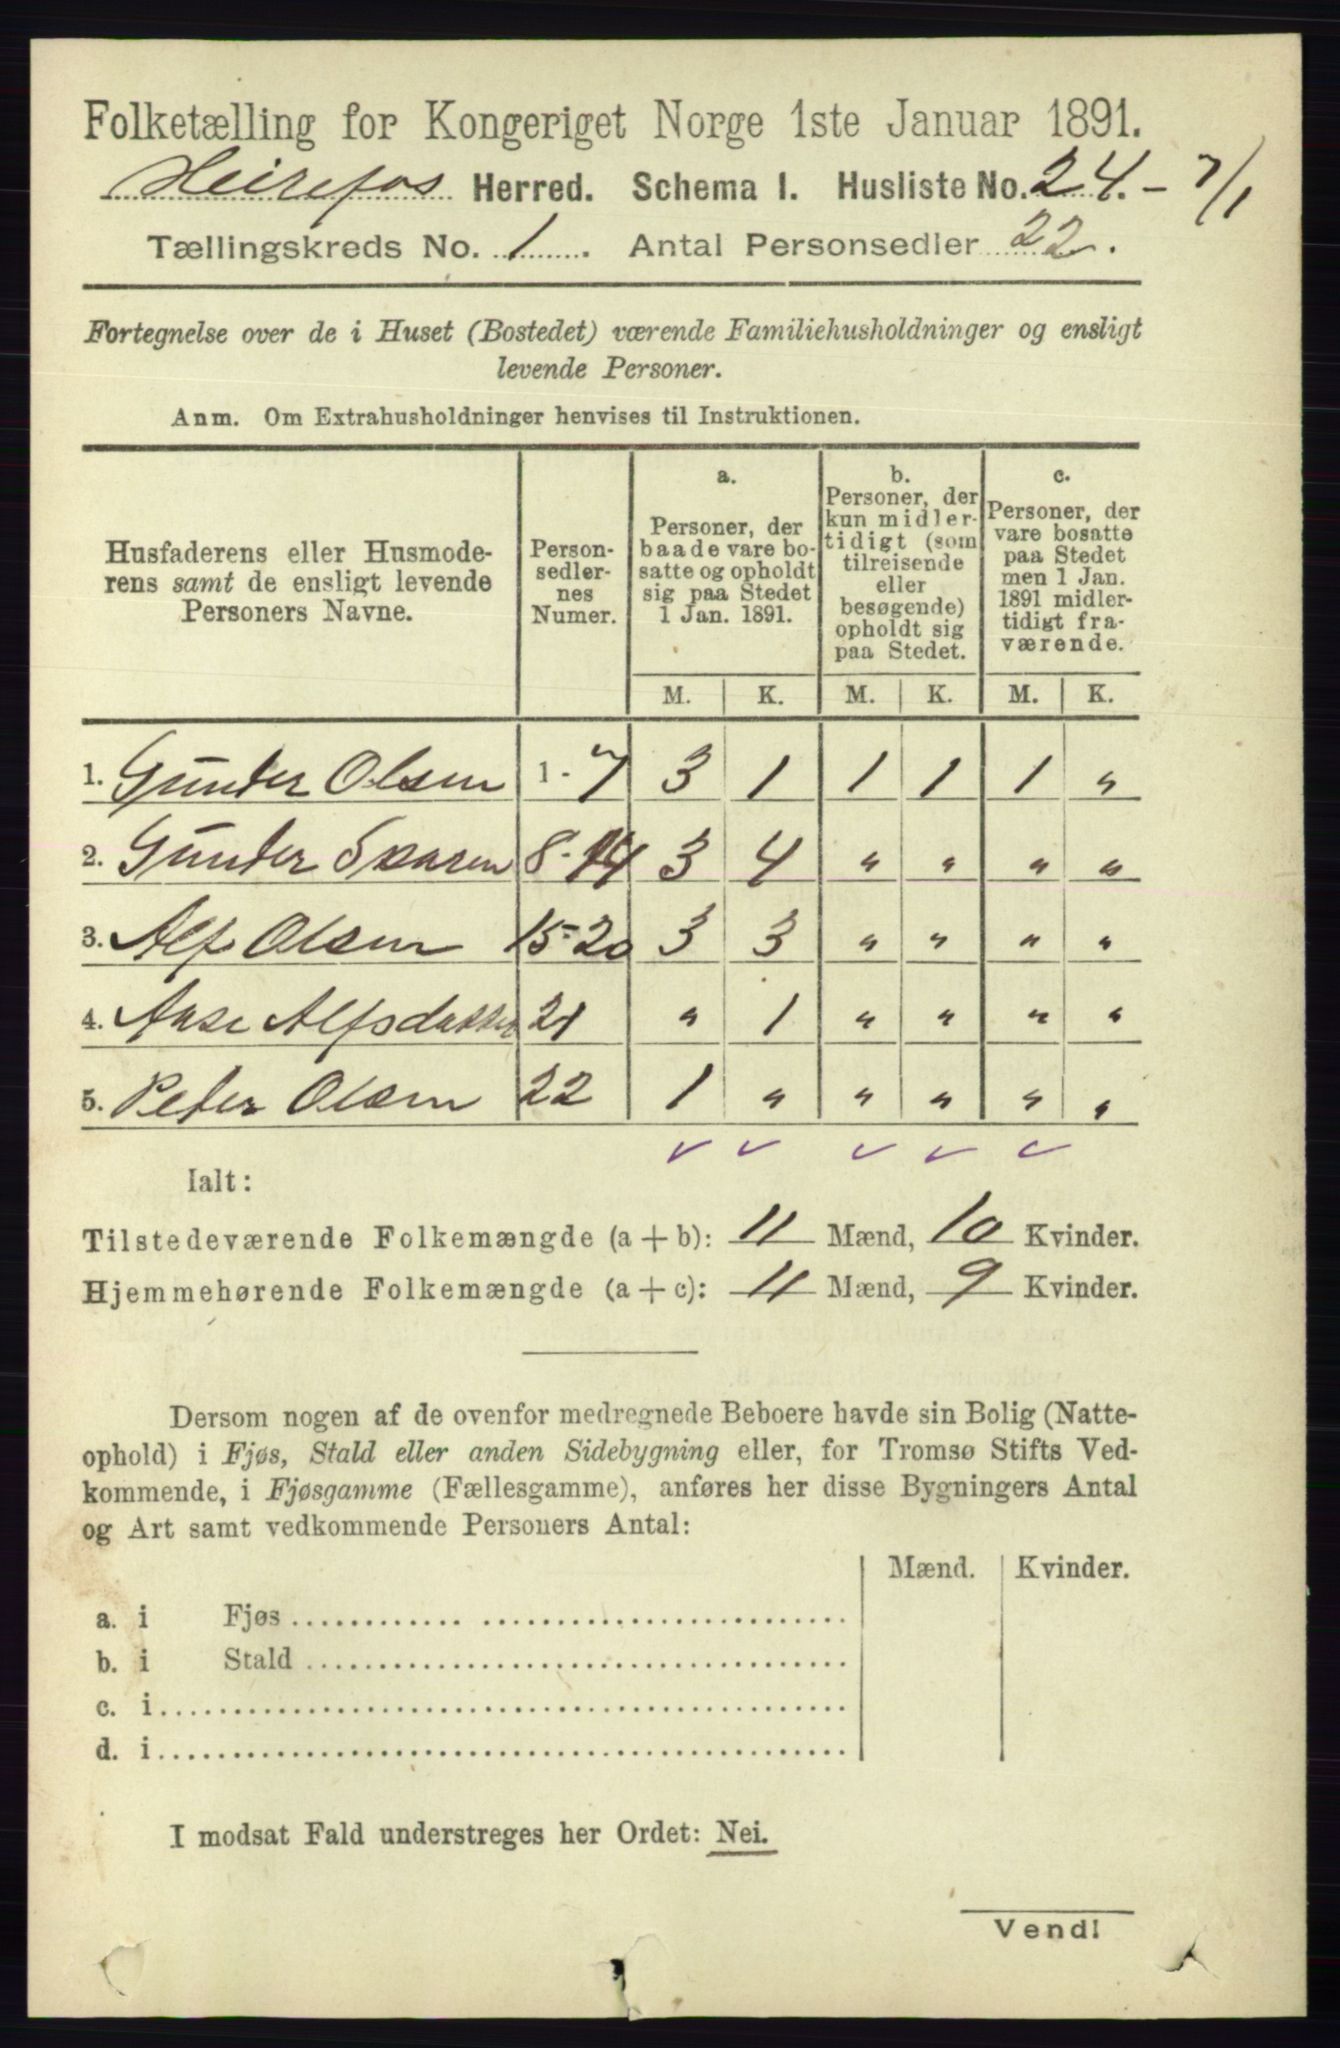 Folketælling for Kongeriget Norge 1ste Januar 1891.
Heirefos Herred. Schema 1. Husliste No. 24. - 7/1
Tællingskreds No. 1. Antal Personsedler 22.
Fortegnelse over de i Huset (Bostedet) værende Familiehusholdninger og ensligt
levende Personer.
Anm. Om Extrahusholdninger henvises til Instruktionen.
Husfaderens eller Husmode-
rens samt de ensligt levende
Personers Navne.
Person-
sedler-
nes
Numer.
a.
Personer, der
baade vare bo-
satte og opholdt
sig paa Stedet
1 Jan. 1891.
b.
Personer, der
kun midler-
tidigt (som
tilreisende
eller
besøgende)
opholdt sig
paa Stedet.
c.
Personer, der
vare bosatte
paa Stedet
men 1 Jan.
1891 midler-
tidigt fra-
værende.
M. K. M. K. M. K.
1. Gunder Olsen 1 - 7 3 1 1 1 1 "
2. Gunder 8 - 14 3 4 " " " "
3. Alf Olsen 15 - 20 3 3 " " " "
4. Aase 21 " 1 " " " "
5. Peter Olsen 22 1 " " " " "
Ialt:
Tilstedeværende Folkemængde (a + b): 11 Mænd, 10 Kvinder.
Hjemmehørende Folkemængde (a + c): 11 Mænd, 9 Kvinder.
Dersom nogen af de ovenfor medregnede Beboere havde sin Bolig (Natte-
ophold) i Fjøs, Stald eller anden Sidebygning eller, for Tromsø Stifts Ved-
kommende, i Fjøsgamme (Fællesgamme), anføres her disse Bygningers Antal
og Art samt vedkommende Personers Antal:
Mænd. Kvinder.
a. i Fjøs
b. i Stald
c. i
d. i
I modsat Fald understreges her Ordet: Nei.
Vend!